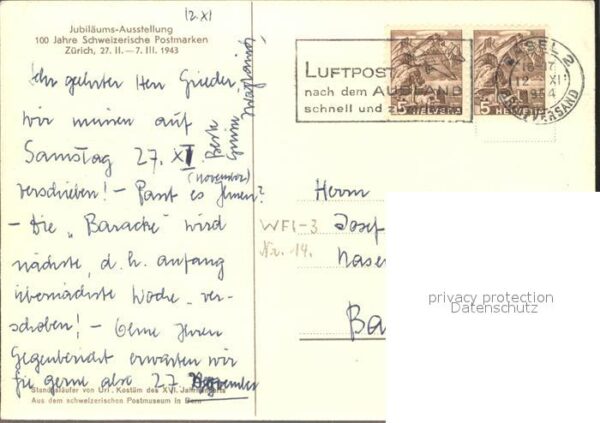 12.XI
Jubiläums-Ausstellung
100 Jahre Schweizerische Postmarken
Zürich, 27. II. – 7. III. 1943
Sehr geehrter Herr Grieder,
wir müssen auf
Samstag 27. XI.
(November)
verschieben! – Passt es Ihnen?
– Die „Baracke" wird
nächste, d. h. anfang
übernächste Woche ver-
schoben! – Gerne Ihren
Gegenbericht erwarten wir
Sie gerne also 27. November
Beste
Grüsse
Standesläufer von Uri. Kostüm des XVI. Jahrhunderts
Aus dem schweizerischen Postmuseum in Bern
LUFTPOST
nach dem AUSLAND
schnell und
5 HELVETIA
5 HELVETIA
BASEL 2
12. XI
1954
BRIEFVERSAND
Herrn
Josef
WF1-3
Nr. 14.
Nase
Ba
privacy protection
Datenschutz